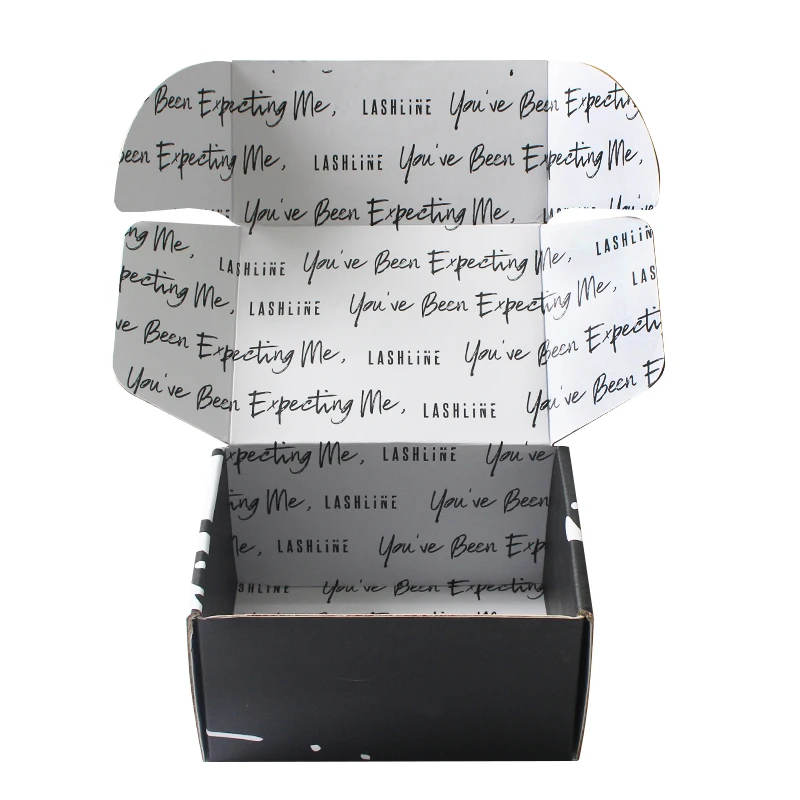 Been Expecting Me, LASHLINE You've Been Expecting
Been Expecting Me, LASHLINE You've Been Expecting Me,
You've Been Expecting Me,
Me, LASHLINE You've Been Expecting Me, LASHLINE
Expecting Me, LASHLINE You've Been Expecting Me,
Been Expecting Me, LASHLINE You've Been Expecting
You've Been Expecting Me, LASHLINE You've Been
Expecting Me, LASHLINE You've
Me, LASHLINE You've Been
Me, LASHLINE You've Been
LASHLINE You've Been Expecting